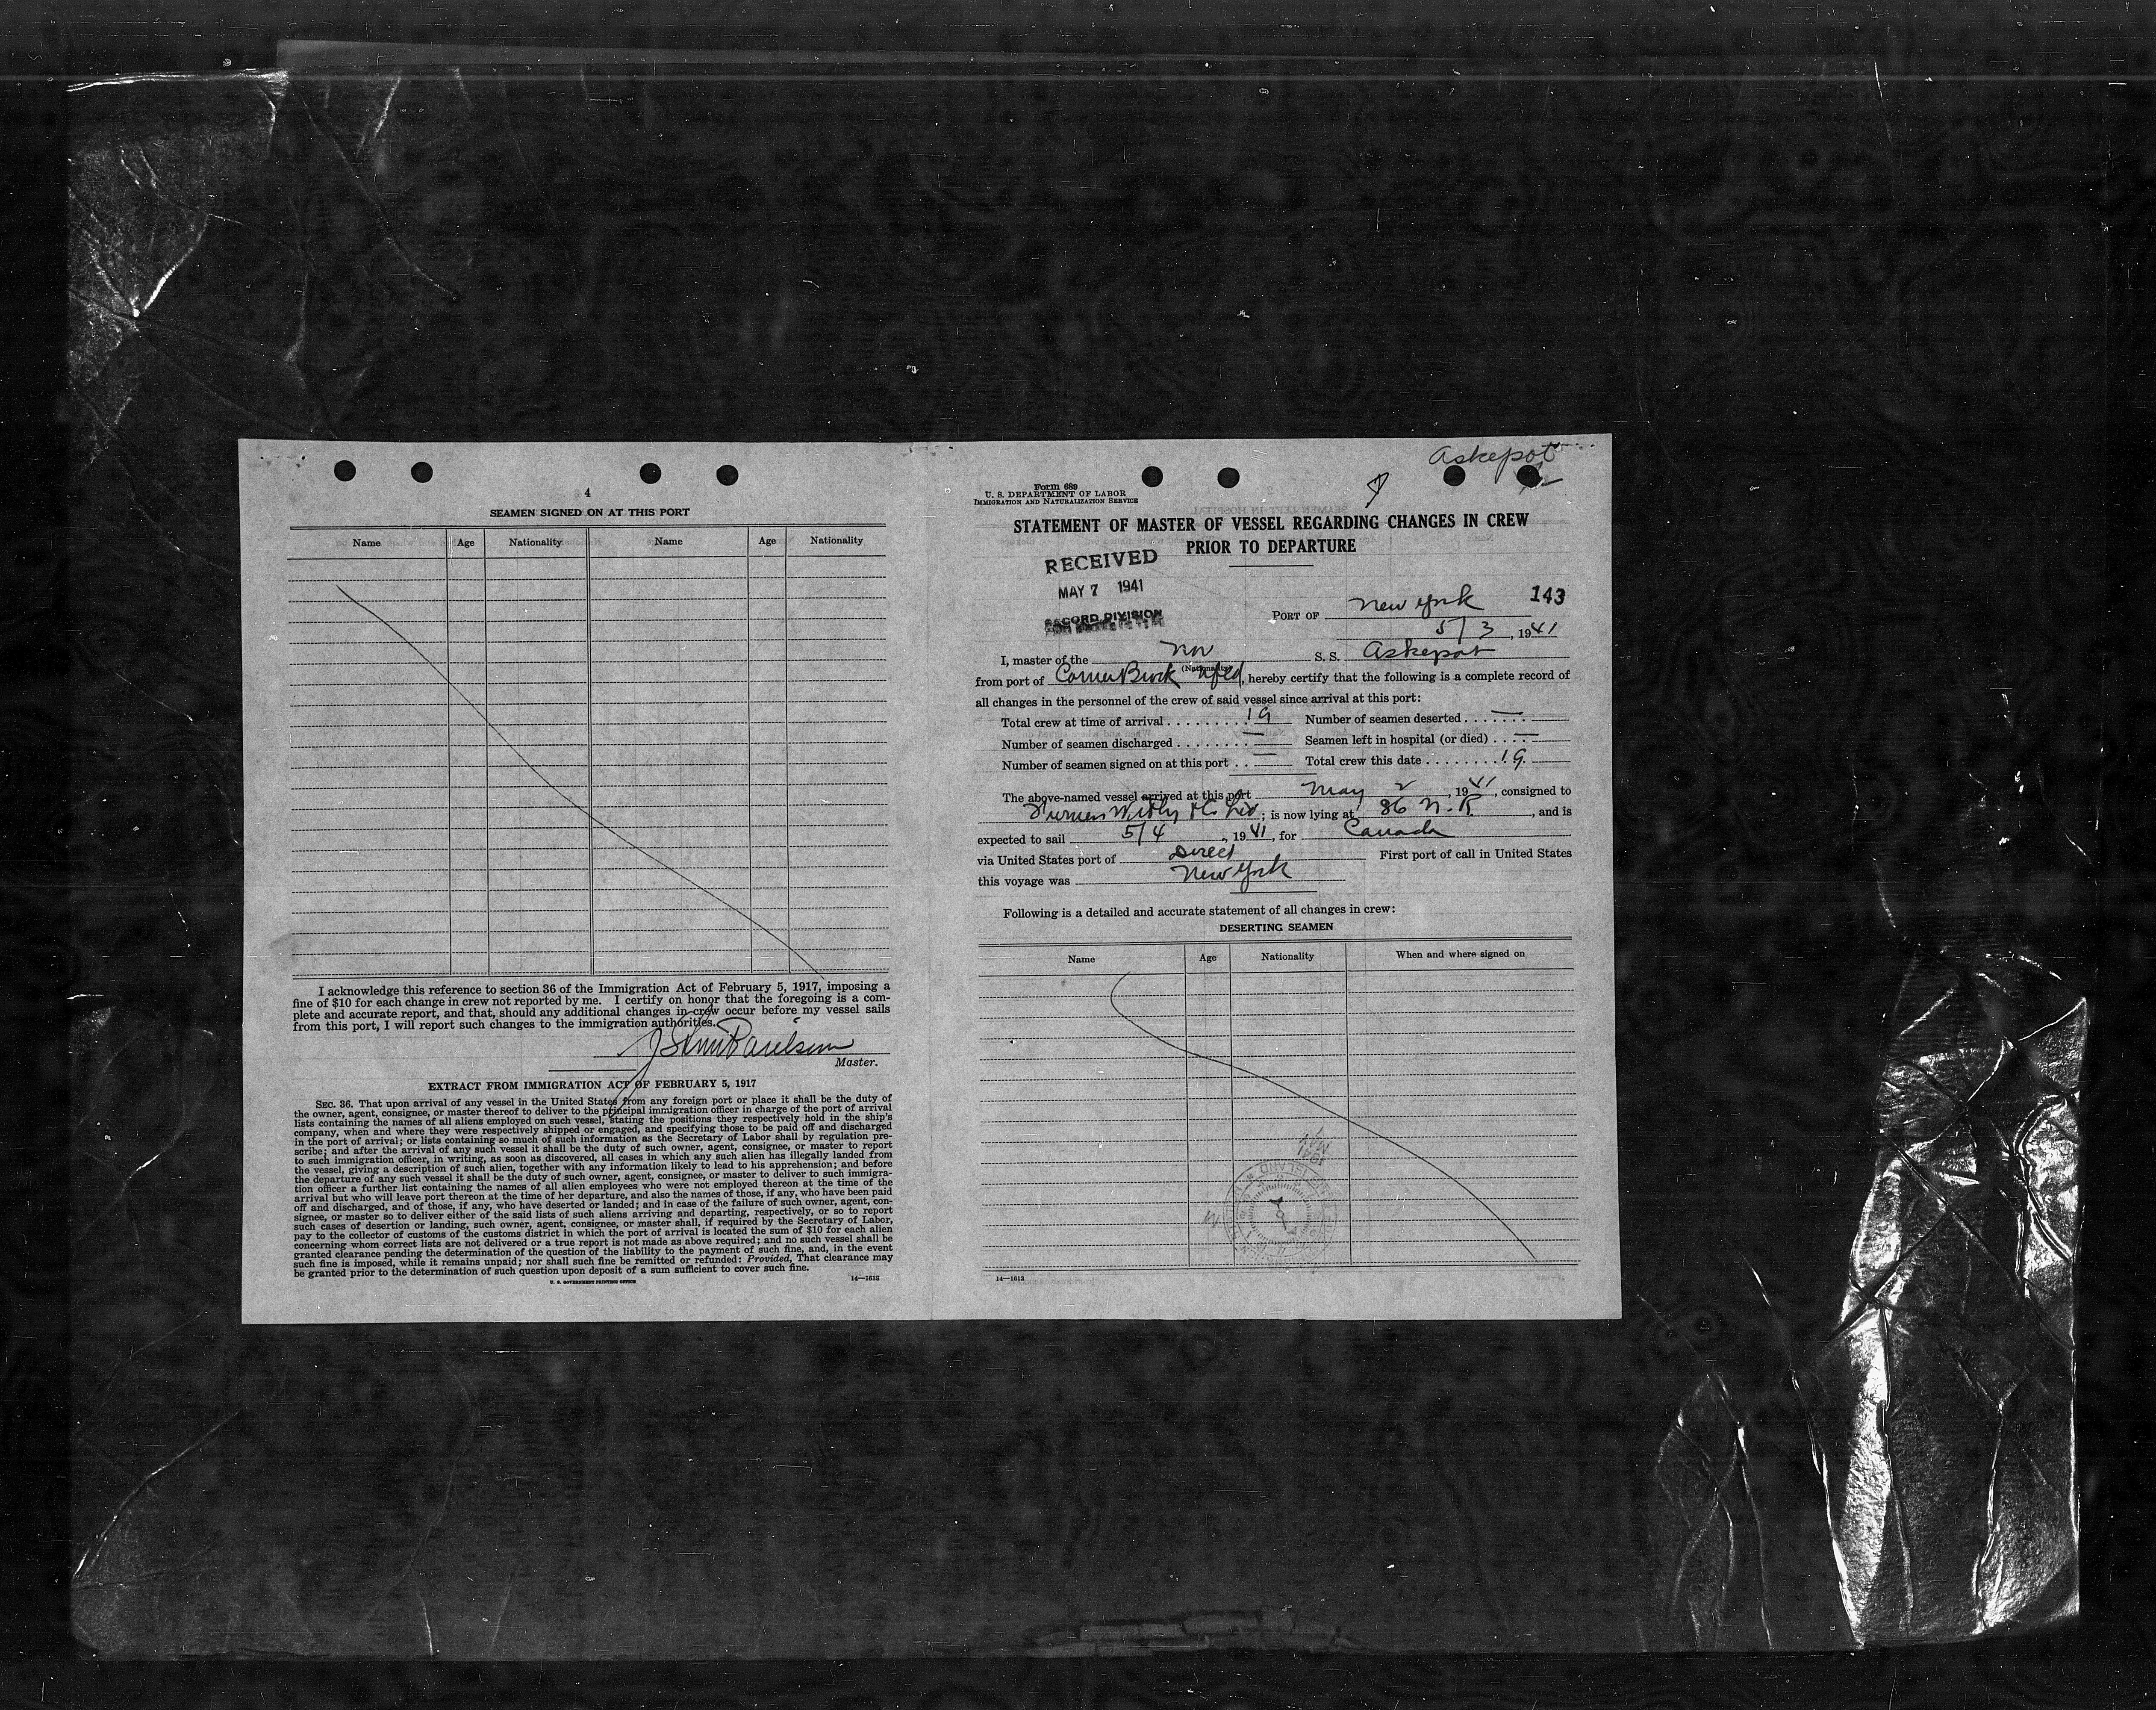 4
SEAMEN SIGNED ON AT THIS PORT
Name Age Nationality Name Age Nationality
I acknowledge this reference to section 36 of the Immigration Act of February 5, 1917, imposing a
fine of $10 for each change in crew not reported by me. I certify on honor that the foregoing is a com-
plete and accurate report, and that, should any additional changes in crew occur before my vessel sails
from this port, I will report such changes to the immigration authorities.
Master.
EXTRACT FROM IMMIGRATION ACT OF FEBRUARY 5, 1917
SEC. 36. That upon arrival of any vessel in the United States from any foreign port or place it shall be the duty of
the owner, agent, consignee, or master thereof to deliver to the principal immigration officer in charge of the port of arrival
lists containing the names of all aliens employed on such vessel, stating the positions they respectively hold in the ship's
company, when and where they were respectively shipped or engaged, and specifying those to be paid off and discharged
in the port of arrival; or lists containing so much of such information as the Secretary of Labor shall by regulation pre-
scribe; and after the arrival of any such vessel it shall be the duty of such owner, agent, consignee, or master to report
to such immigration officer, in writing, as soon as discovered, all cases in which any such alien has illegally landed from
the vessel, giving a description of such alien, together with any information likely to lead to his apprehension; and before
the departure of any such vessel it shall be the duty of such owner, agent, consignee, or master to deliver to such immigra-
tion officer a further list containing the names of all alien employees who were not employed thereon at the time of the
arrival but who will leave port thereon at the time of her departure, and also the names of those, if any, who have been paid
off and discharged, and of those, if any, who have deserted or landed; and in case of the failure of such owner, agent, con-
signee, or master so to deliver either of the said lists of such aliens arriving and departing, respectively, or so to report
such cases of desertion or landing, such owner, agent, consignee, or master shall, if required by the Secretary of Labor,
pay to the collector of customs of the customs district in which the port of arrival is located the sum of $10 for each alien
concerning whom correct lists are not delivered or a true report is not made as above required; and no such vessel shall be
granted clearance pending the determination of the question of the liability to the payment of such fine, and, in the event
such fine is imposed, while it remains unpaid; nor shall such fine be remitted or refunded: Provided, That clearance may
be granted prior to the determination of such question upon deposit of a sum sufficient to cover such fine.
U. S. GOVERNMENT PRINTING OFFICE 14—1613
Askepot
Form 689
U. S. DEPARTMENT OF LABOR
IMMIGRATION AND NATURALIZATION SERVICE
STATEMENT OF MASTER OF VESSEL REGARDING CHANGES IN CREW
PRIOR TO DEPARTURE
RECEIVED
MAY 7 1941
RECORD DIVISION
PORT OF New York 143
5/3, 1941
I, master of the Nor S. S. Askepot
(Nationality)
from port of Corner Brook Nfld, hereby certify that the following is a complete record of
all changes in the personnel of the crew of said vessel since arrival at this port:
Total crew at time of arrival 19 Number of seamen deserted —
Number of seamen discharged — Seamen left in hospital (or died) —
Number of seamen signed on at this port — Total crew this date 19
The above-named vessel arrived at this port May 2, 1941, consigned to
Furness Withy & Co Ltd; is now lying at 86 N. R., and is
expected to sail 5/4, 1941, for Canada
via United States port of Direct First port of call in United States
this voyage was New York
Following is a detailed and accurate statement of all changes in crew:
DESERTING SEAMEN
Name Age Nationality When and where signed on
14—1613